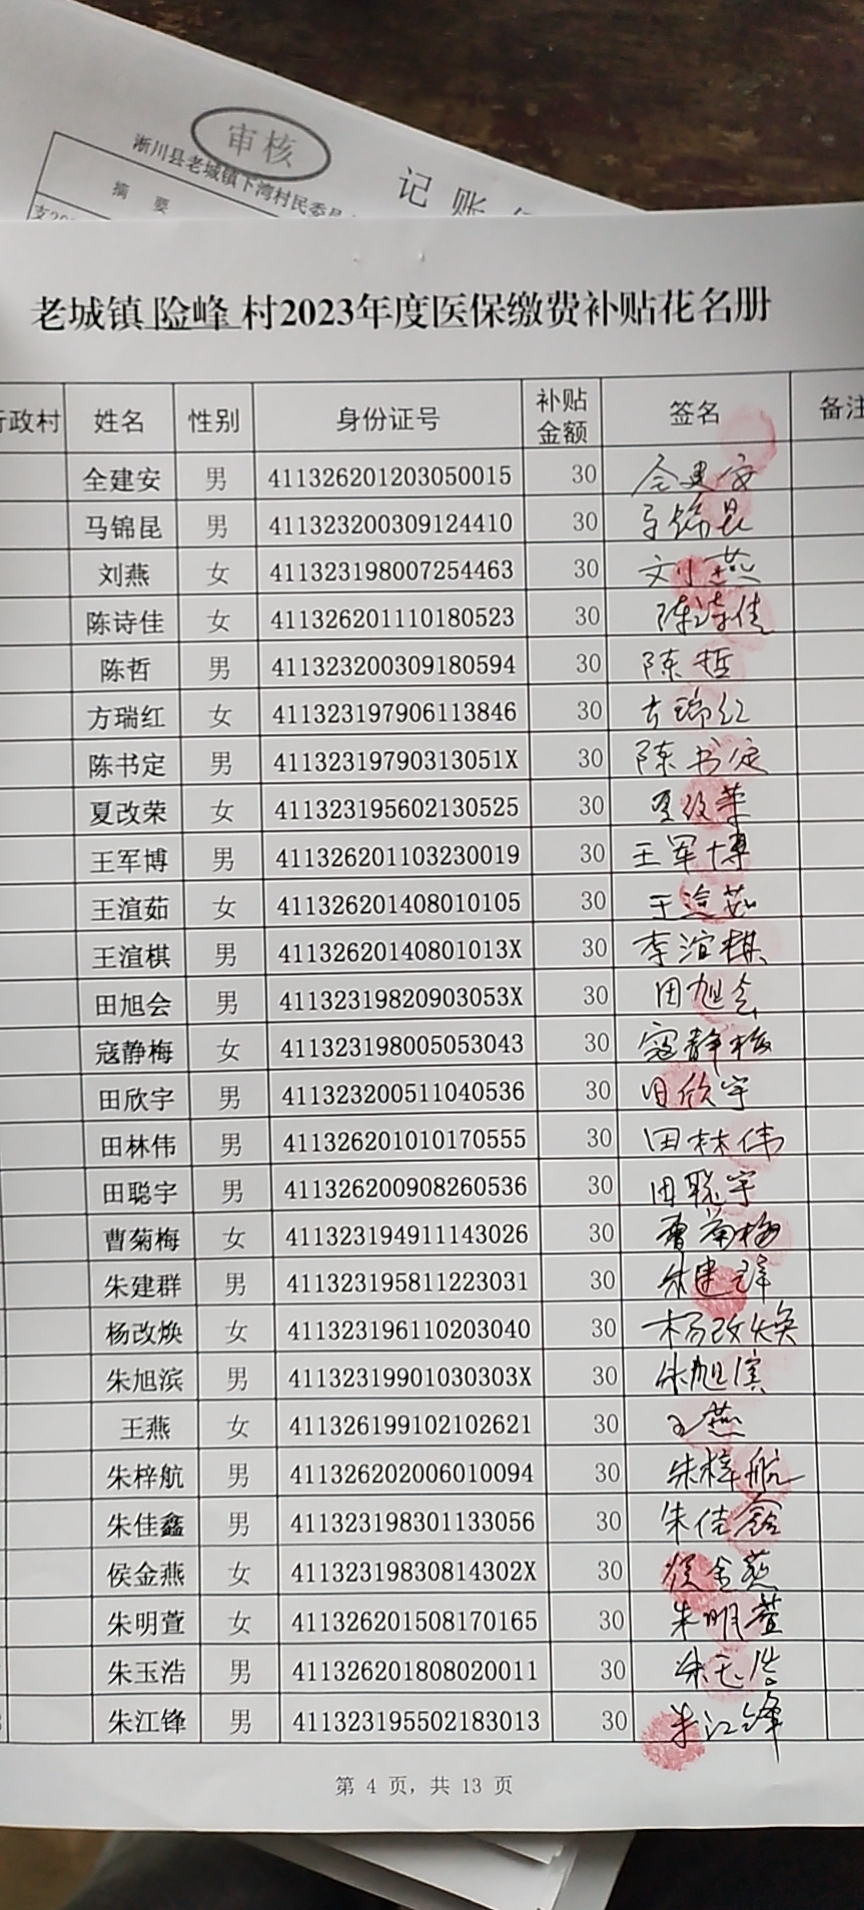 审核
淅川县老城镇下湾村民委员
记账
摘 要
老城镇 险峰 村2023年度医保缴费补贴花名册
行政村 姓名 性别 身份证号 补贴金额 签名 备注
全建安 男 411326201203050015 30 全建安
马锦昆 男 411323200309124410 30 马锦昆
刘燕 女 411323198007254463 30 刘燕
陈诗佳 女 411326201110180523 30 陈诗佳
陈哲 男 411323200309180594 30 陈哲
方瑞红 女 411323197906113846 30 方瑞红
陈书定 男 41132319790313051X 30 陈书定
夏改荣 女 411323195602130525 30 夏改荣
王军博 男 411326201103230019 30 王军博
王渲茹 女 411326201408010105 30 王渲茹
王渲棋 男 41132620140801013X 30 李渲棋
田旭会 男 41132319820903053X 30 田旭会
寇静梅 女 411323198005053043 30 寇静梅
田欣宇 男 411323200511040536 30 田欣宇
田林伟 男 411326201010170555 30 田林伟
田聪宇 男 411326200908260536 30 田聪宇
曹菊梅 女 411323194911143026 30 曹菊梅
朱建群 男 411323195811223031 30 朱建群
杨改焕 女 411323196110203040 30 杨改焕
朱旭滨 男 41132319901030303X 30 朱旭滨
王燕 女 411326199102102621 30 王燕
朱梓航 男 411326202006010094 30 朱梓航
朱佳鑫 男 411323198301133056 30 朱佳鑫
侯金燕 女 41132319830814302X 30 侯金燕
朱明萱 女 411326201508170165 30 朱明萱
朱玉浩 男 411326201808020011 30 朱玉浩
朱江锋 男 411323195502183013 30 朱江锋
第 4 页，共 13 页